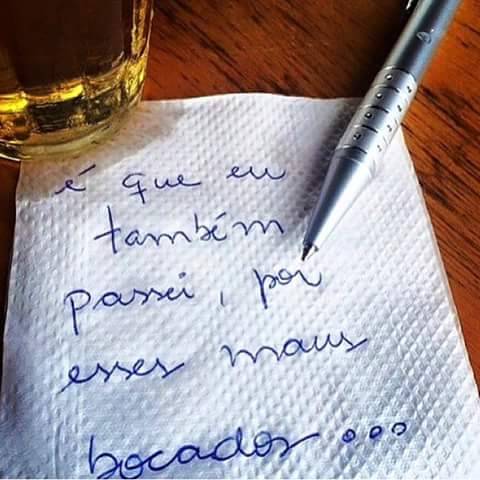 é que eu
também
passei, por
esses maus
bocados...